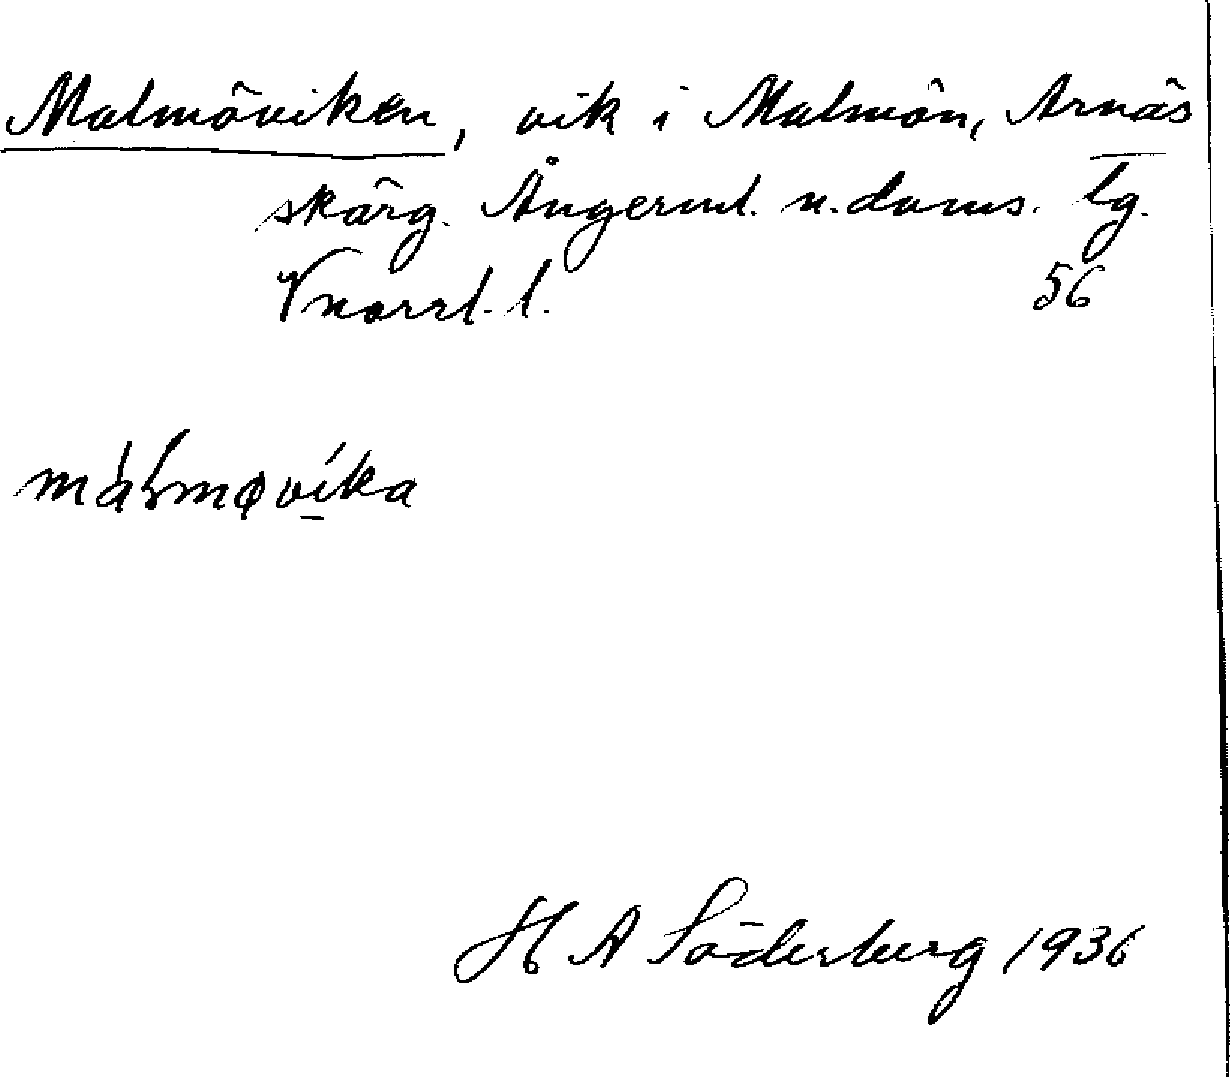 Malmöviken, vik i Malmön, Arnäs
skärg. Ångerml. n. doms. tg.
Vnorrl. l. 56
málmøvíka
H A Söderberg 1936